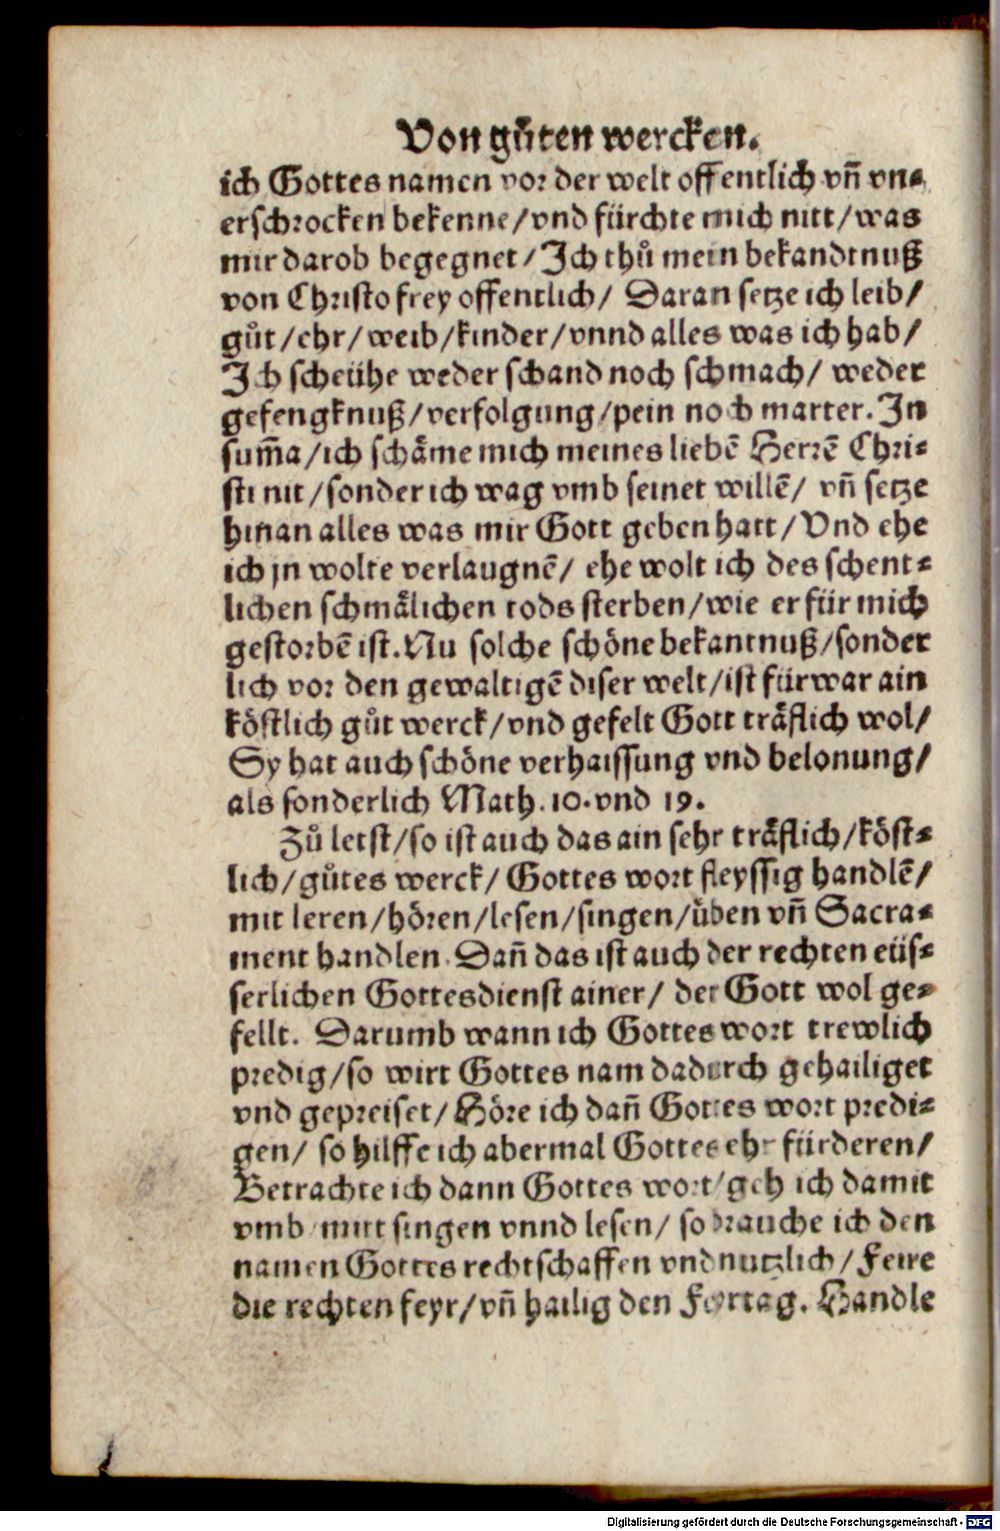 Von gůten wercken.
ich Gottes namen vor der welt offentlich vñ vn⸗
erschrocken bekenne/vnd fürchte mich nitt/was
mir darob begegnet/Ich thů mein bekandtnuß
von Christo frey offentlich/ Daran setze ich leib/
gůt/ehr/weib/kinder/vnnd alles was ich hab/
Ich scheühe weder schand noch schmach/ weder
gefengknuß/verfolgung/pein noch marter. In
sum̃a/ich schäme mich meines liebẽ Herrẽ Chri⸗
sti nit/sonder ich wag vmb seinet willẽ/ vñ setze
hinan alles was mir Gott geben hatt/Vnd ehe
ich jn wolte verlaugnẽ/ ehe wolt ich des schent⸗
lichen schmälichen tods sterben/wie er für mich
gestorbẽ ist. Nu solche schöne bekantnuß/sonder
lich vor den gewaltigẽ diser welt/ist fürwar ain
köstlich gůt werck/vnd gefelt Gott träflich wol/
Sy hat auch schöne verhaissung vnd belonung/
als sonderlich Math. 10. vnd 19.
Zů letst/so ist auch das ain sehr träflich/köst⸗
lich/gůtes werck/ Gottes wort fleyssig handlẽ/
mit leren/hören/lesen/singen/üben vñ Sacra⸗
ment handlen. Dañ das ist auch der rechten eüs⸗
serlichen Gottesdienst ainer/ der Gott wol ge⸗
fellt. Darumb wann ich Gottes wort trewlich
predig/so wirt Gottes nam dadurch gehailiget
vnd gepreiset/ Höre ich dañ Gottes wort predi⸗
gen/ so hilffe ich abermal Gottes ehr fürderen/
Betrachte ich dann Gottes wort/geh ich damit
vmb mitt singen vnnd lesen/ so brauche ich den
namen Gottes rechtschaffen vnd nutzlich/Feire
die rechten feyr/vñ hailig den Feyrtag. Handle
Digitalisierung gefördert durch die Deutsche Forschungsgemeinschaft - DFG